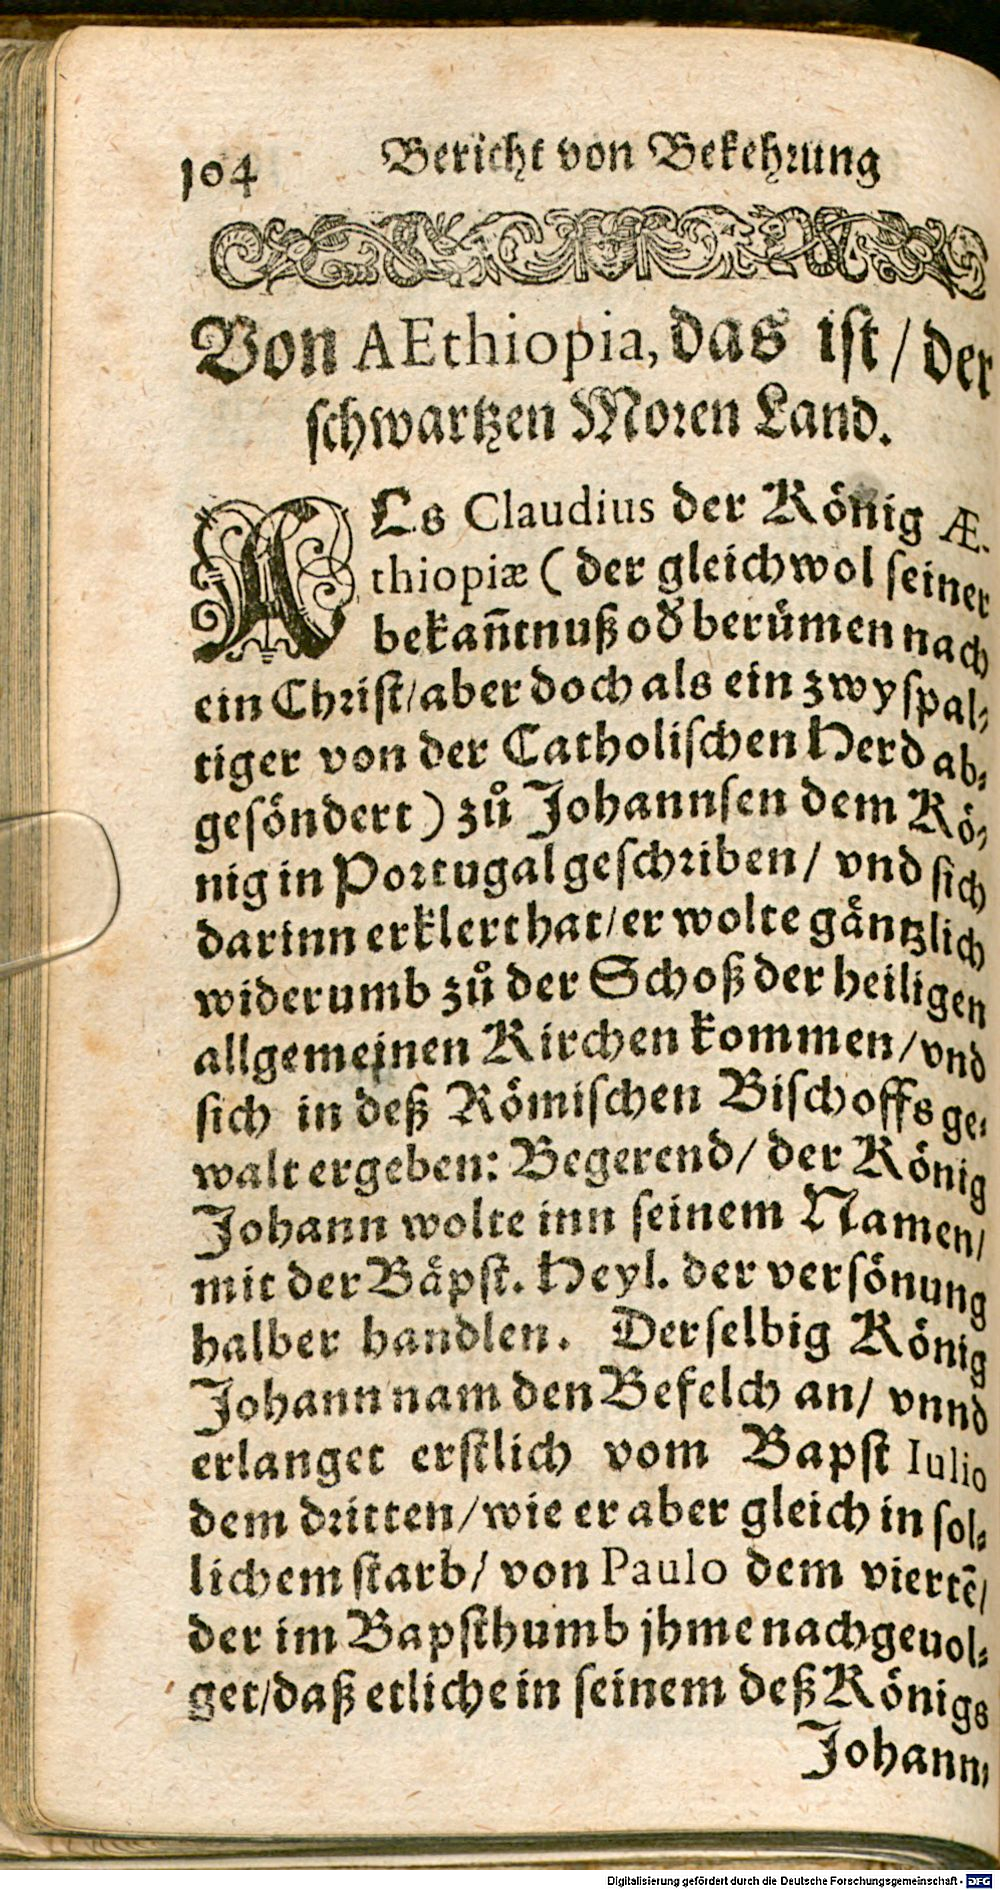 104 Bericht von Bekehrung
Von AEthiopia, das ist / der
schwartzen Moren Land.
ALs Claudius der König Æ-
thiopiæ ( der gleichwol seiner
bekañtnuß od̃ berůmen nach
ein Christ / aber doch als ein zwyspal-
tiger von der Catholischen Herd ab-
gesöndert ) zů Johannsen dem Kö-
nig in Portugal geschriben / vnd sich
darinn erklert hat / er wolte gäntzlich
widerumb zů der Schoß der heiligen
allgemeinen Kirchen kommen / vnd
sich in deß Römischen Bischoffs ge-
walt ergeben: Begerend / der König
Johann wolte inn seinem Namen /
mit der Bäpst. Heyl. der versönung
halber handlen. Derselbig König
Johann nam den Befelch an / vnnd
erlanget erstlich vom Bapst Iulio
dem dritten / wie er aber gleich in sol-
lichem starb / von Paulo dem viertẽ /
der im Bapsthumb jhme nachgeuol-
get / daß etliche in seinem deß Königs
Johann-
Digitalisierung gefördert durch die Deutsche Forschungsgemeinschaft - DFG